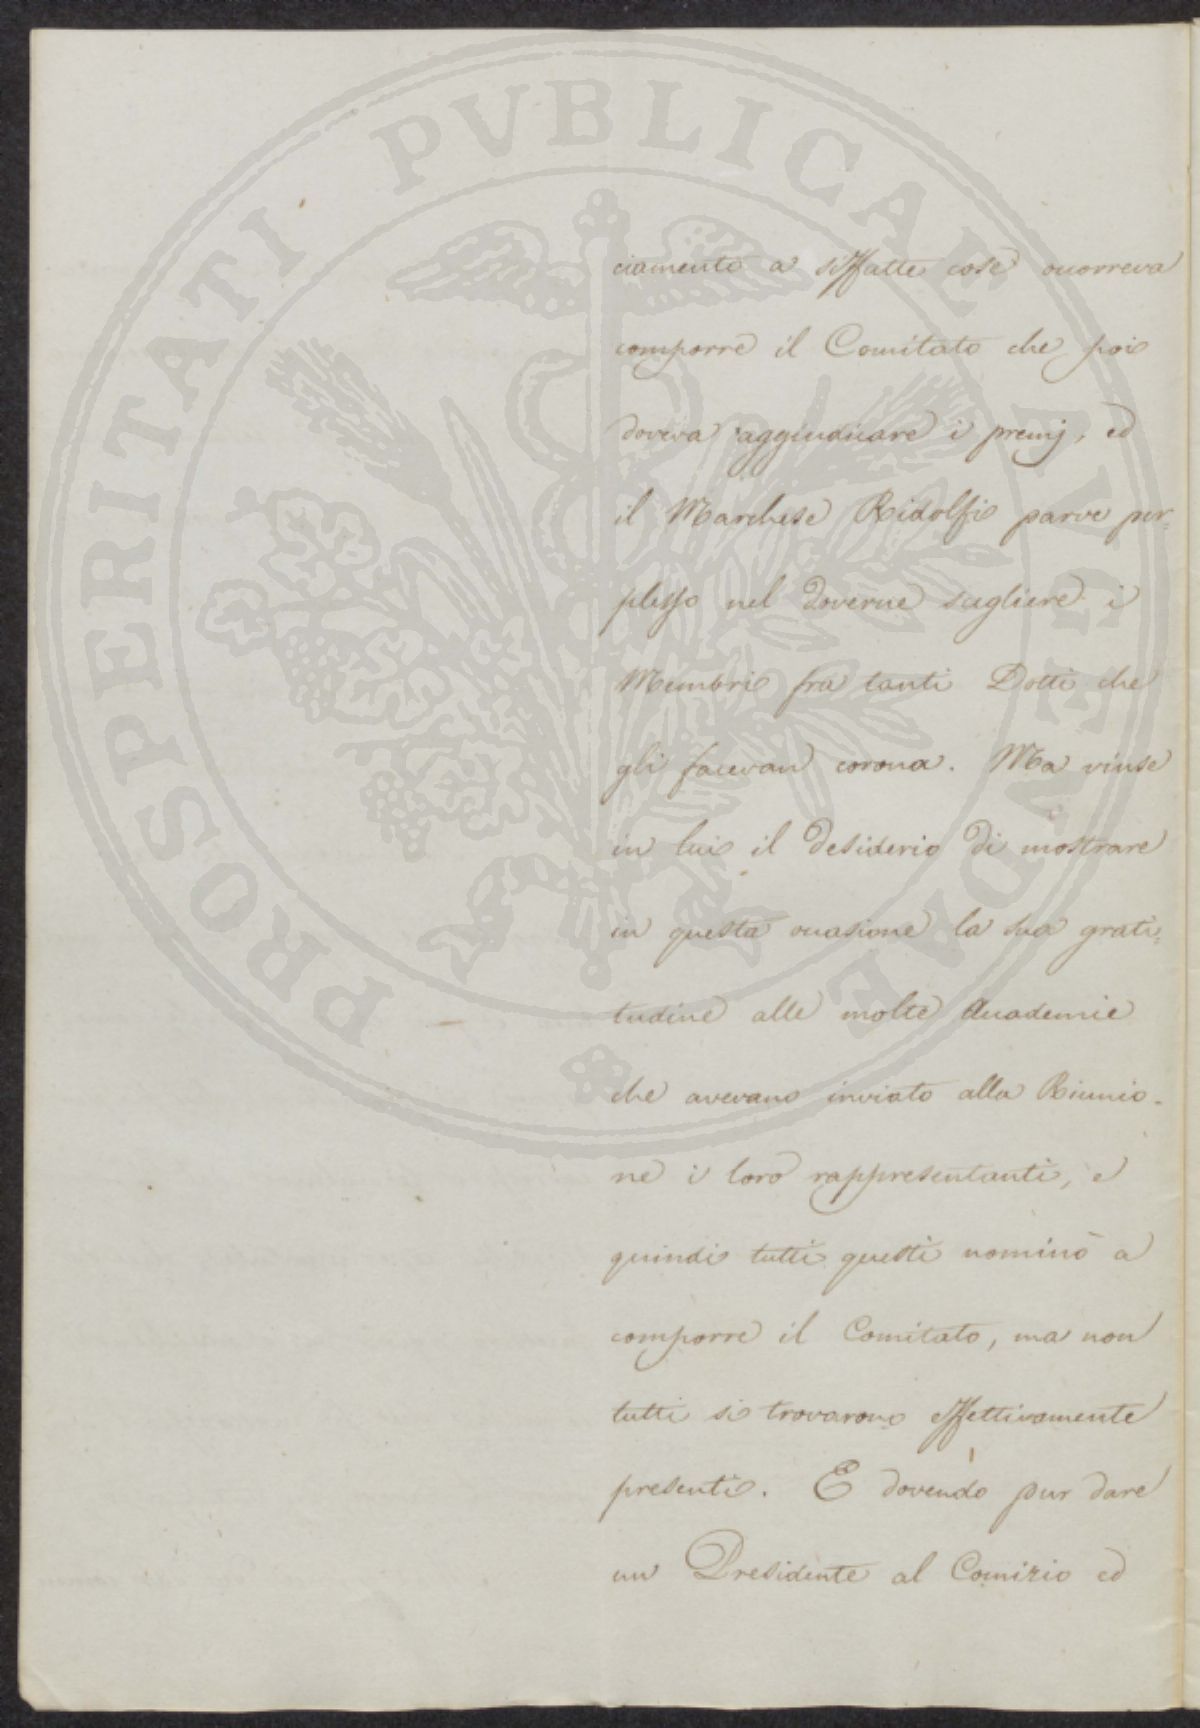 PROSPERITATI PVBLICAE AVGENDAE
ciamento a siffatte cose occorreva
comporre il Comitato che poi
doveva aggiudicare i premj, ed
il Marchese Ridolfi parve per=
plesso nel doverne scegliere i
Membri fra tanti Dotti che
gli facevan corona. Ma vinse
in lui il desiderio di mostrare
in questa occasione la sua grati=
tudine alle molte Accademie
che avevano inviato alla Riunio=
ne i loro rappresentanti, e
quindi tutti questi nominò a
comporre il Comitato, ma non
tutti si trovarono effettivamente
presenti. E dovendo pur dare
un Presidente al Comizio ed